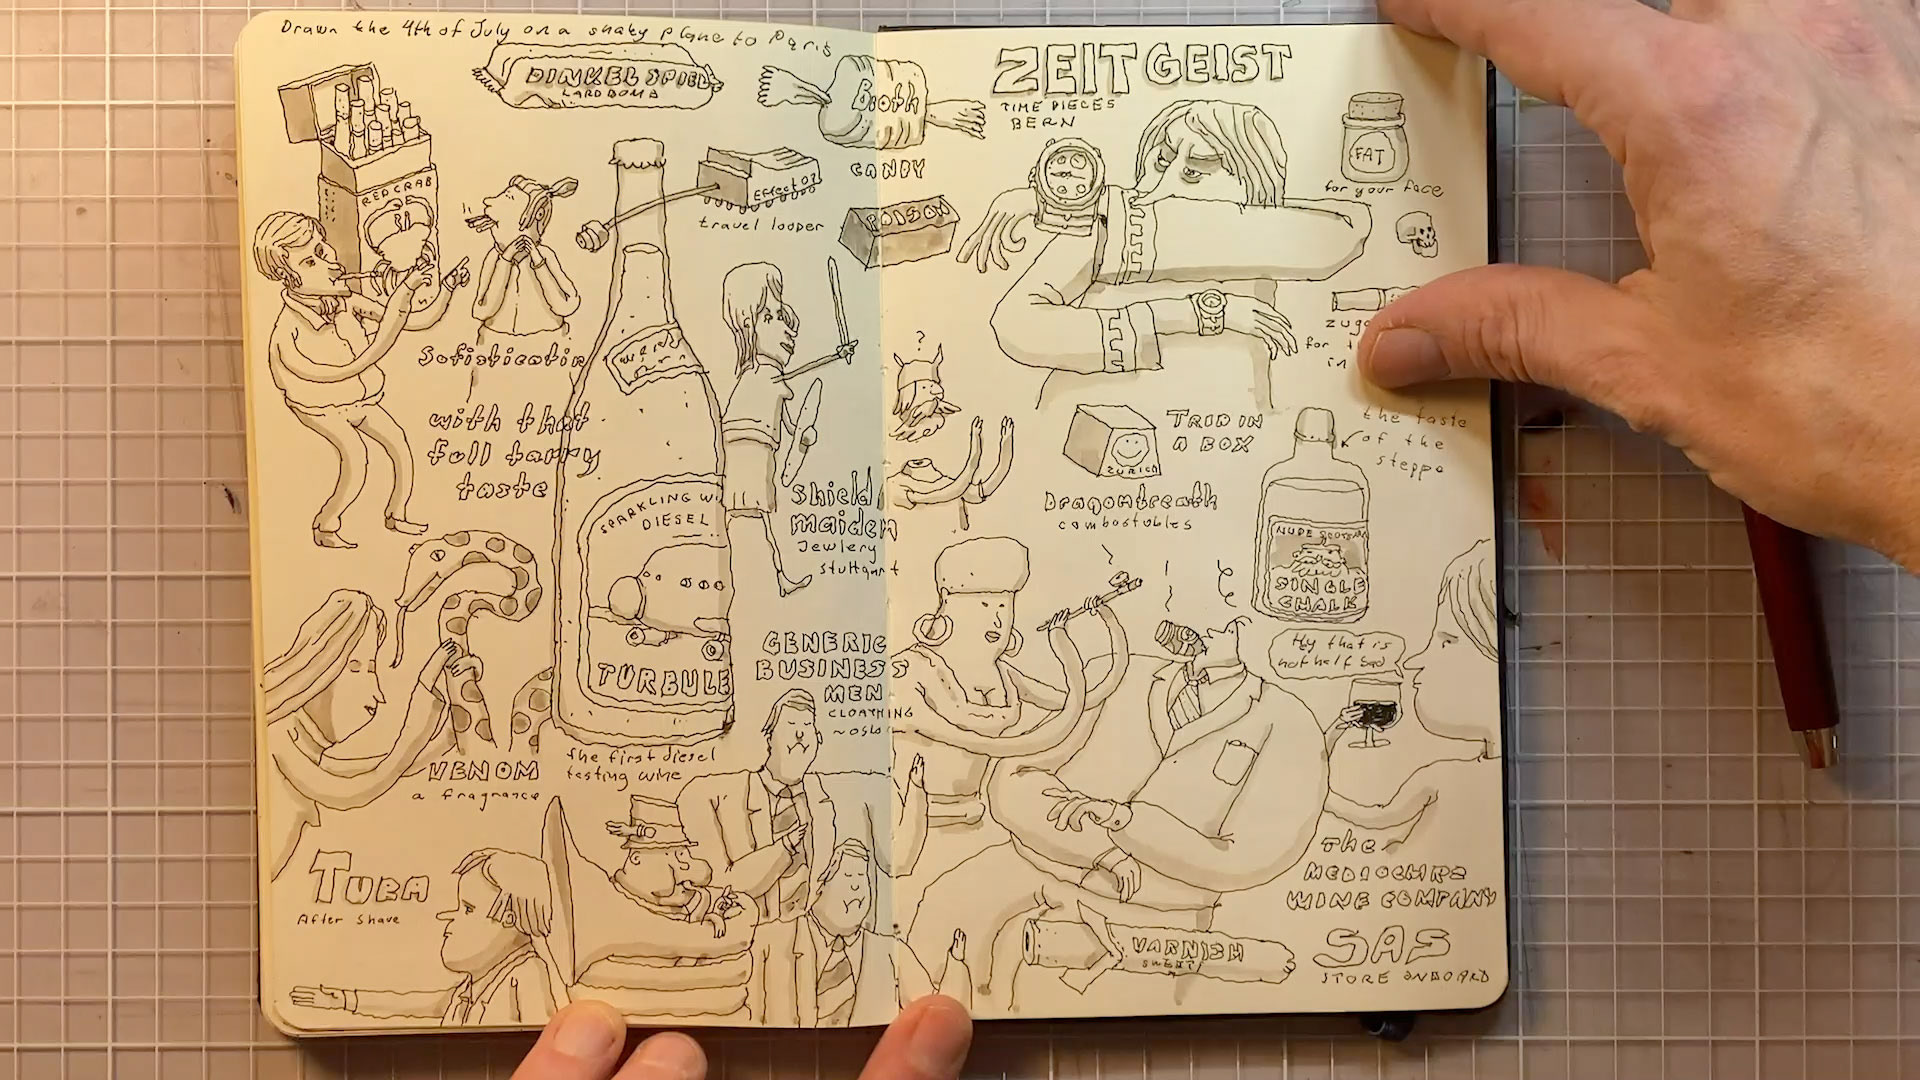 Drawn the 4th of July on a shaky plane to Paris
DINKEL SPIEL
LARD BOMB
Booth
CANDY
RED CRAB
Effect 07
travel looper
POISON
Sofisticatin
with that
full tarry
taste
SPARKLING WI
DIESEL
TURBULE
the first diesel
tasting wine
Shield
maiden
Jewlery
stuttgart
GENERIC
BUSINESS
MEN
CLOATHING
~OSLO~
VENOM
a fragrance
TUBA
After Shave
ZEITGEIST
TIME PIECES
BERN
FAT
for your face
for
in
?
TRIP IN
A BOX
ZURICH
Dragonbreath
combostobles
the taste
of the
steppe
NUDE
SINGLE
CHALK
Hy that is
not half bad
The
MEDIOCHRE
WINE COMPANY
VARNISH
SWEAT
SAS
STORE ONBOARD